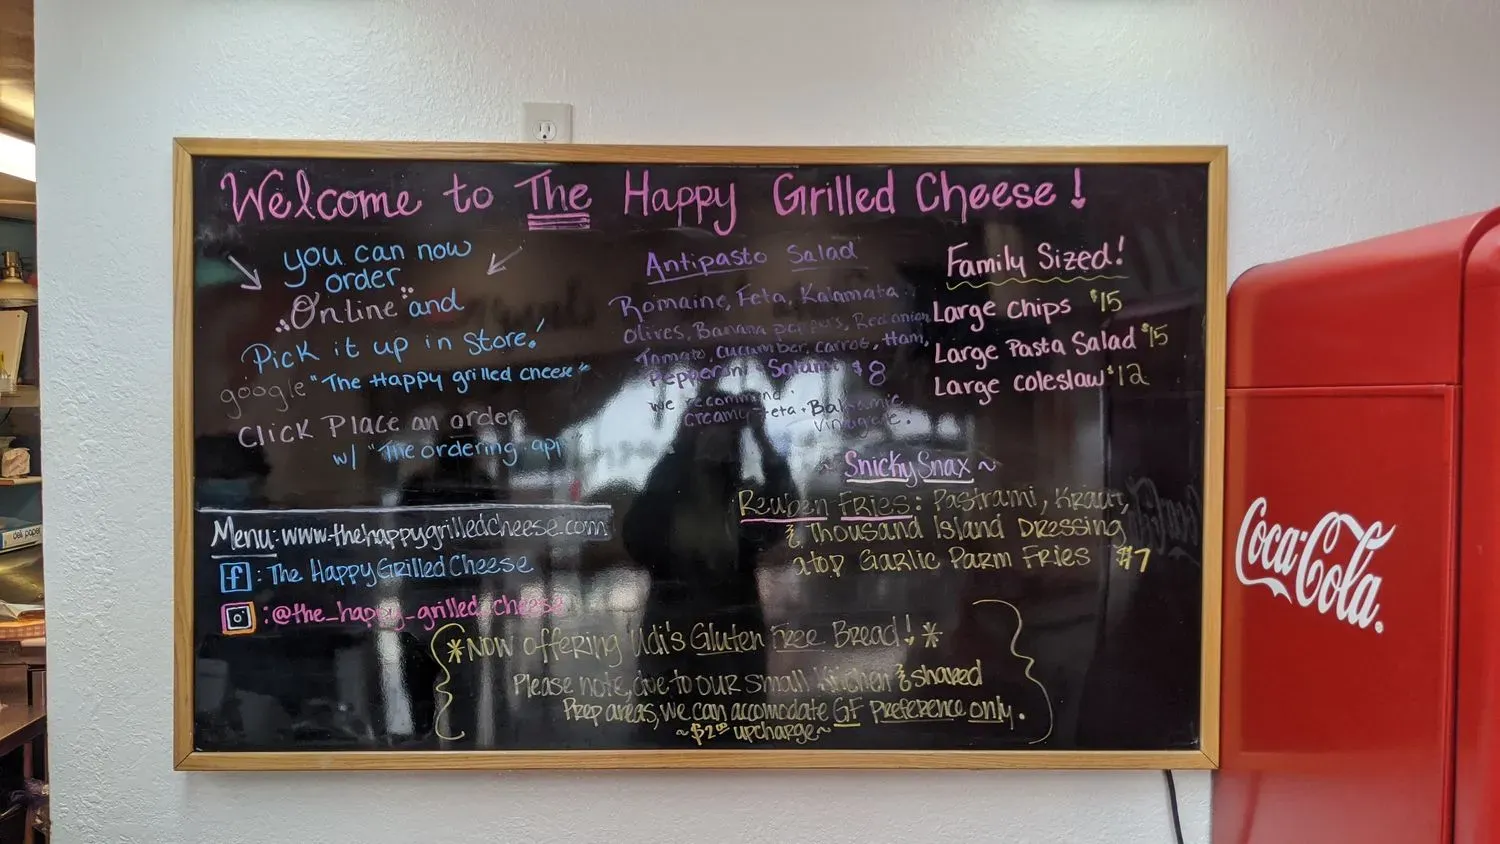 Welcome to The Happy Grilled Cheese!
you can now
order
Online and
Pick it up in Store!
google "The Happy grilled cheese"
Click Place an order
w/ "The ordering app"
Menu: www.thehappygrilledcheese.com
f: The HappyGrilledCheese
: @the_happy_grilled_cheese
Antipasto Salad
Romaine, Feta, Kalamata
olives, Banana peppers, Red onion,
Tomato, cucumber, carrot, Ham,
Pepperoni, Salami $8
we recommend
creamy feta + Balsamic
Family Sized!
Large Chips $15
Large Pasta Salad $15
Large coleslaw $12
~ Snicky Snax ~
Reuben Fries: Pastrami, Kraut,
& Thousand Island Dressing
atop Garlic Parm Fries $7
*Now offering Udi's Gluten Free Bread! *
Please note, due to our small kitchen & shared
Prep areas, we can accomodate GF preference only.
~$2.00 upcharge~
Coca-Cola
deli paper